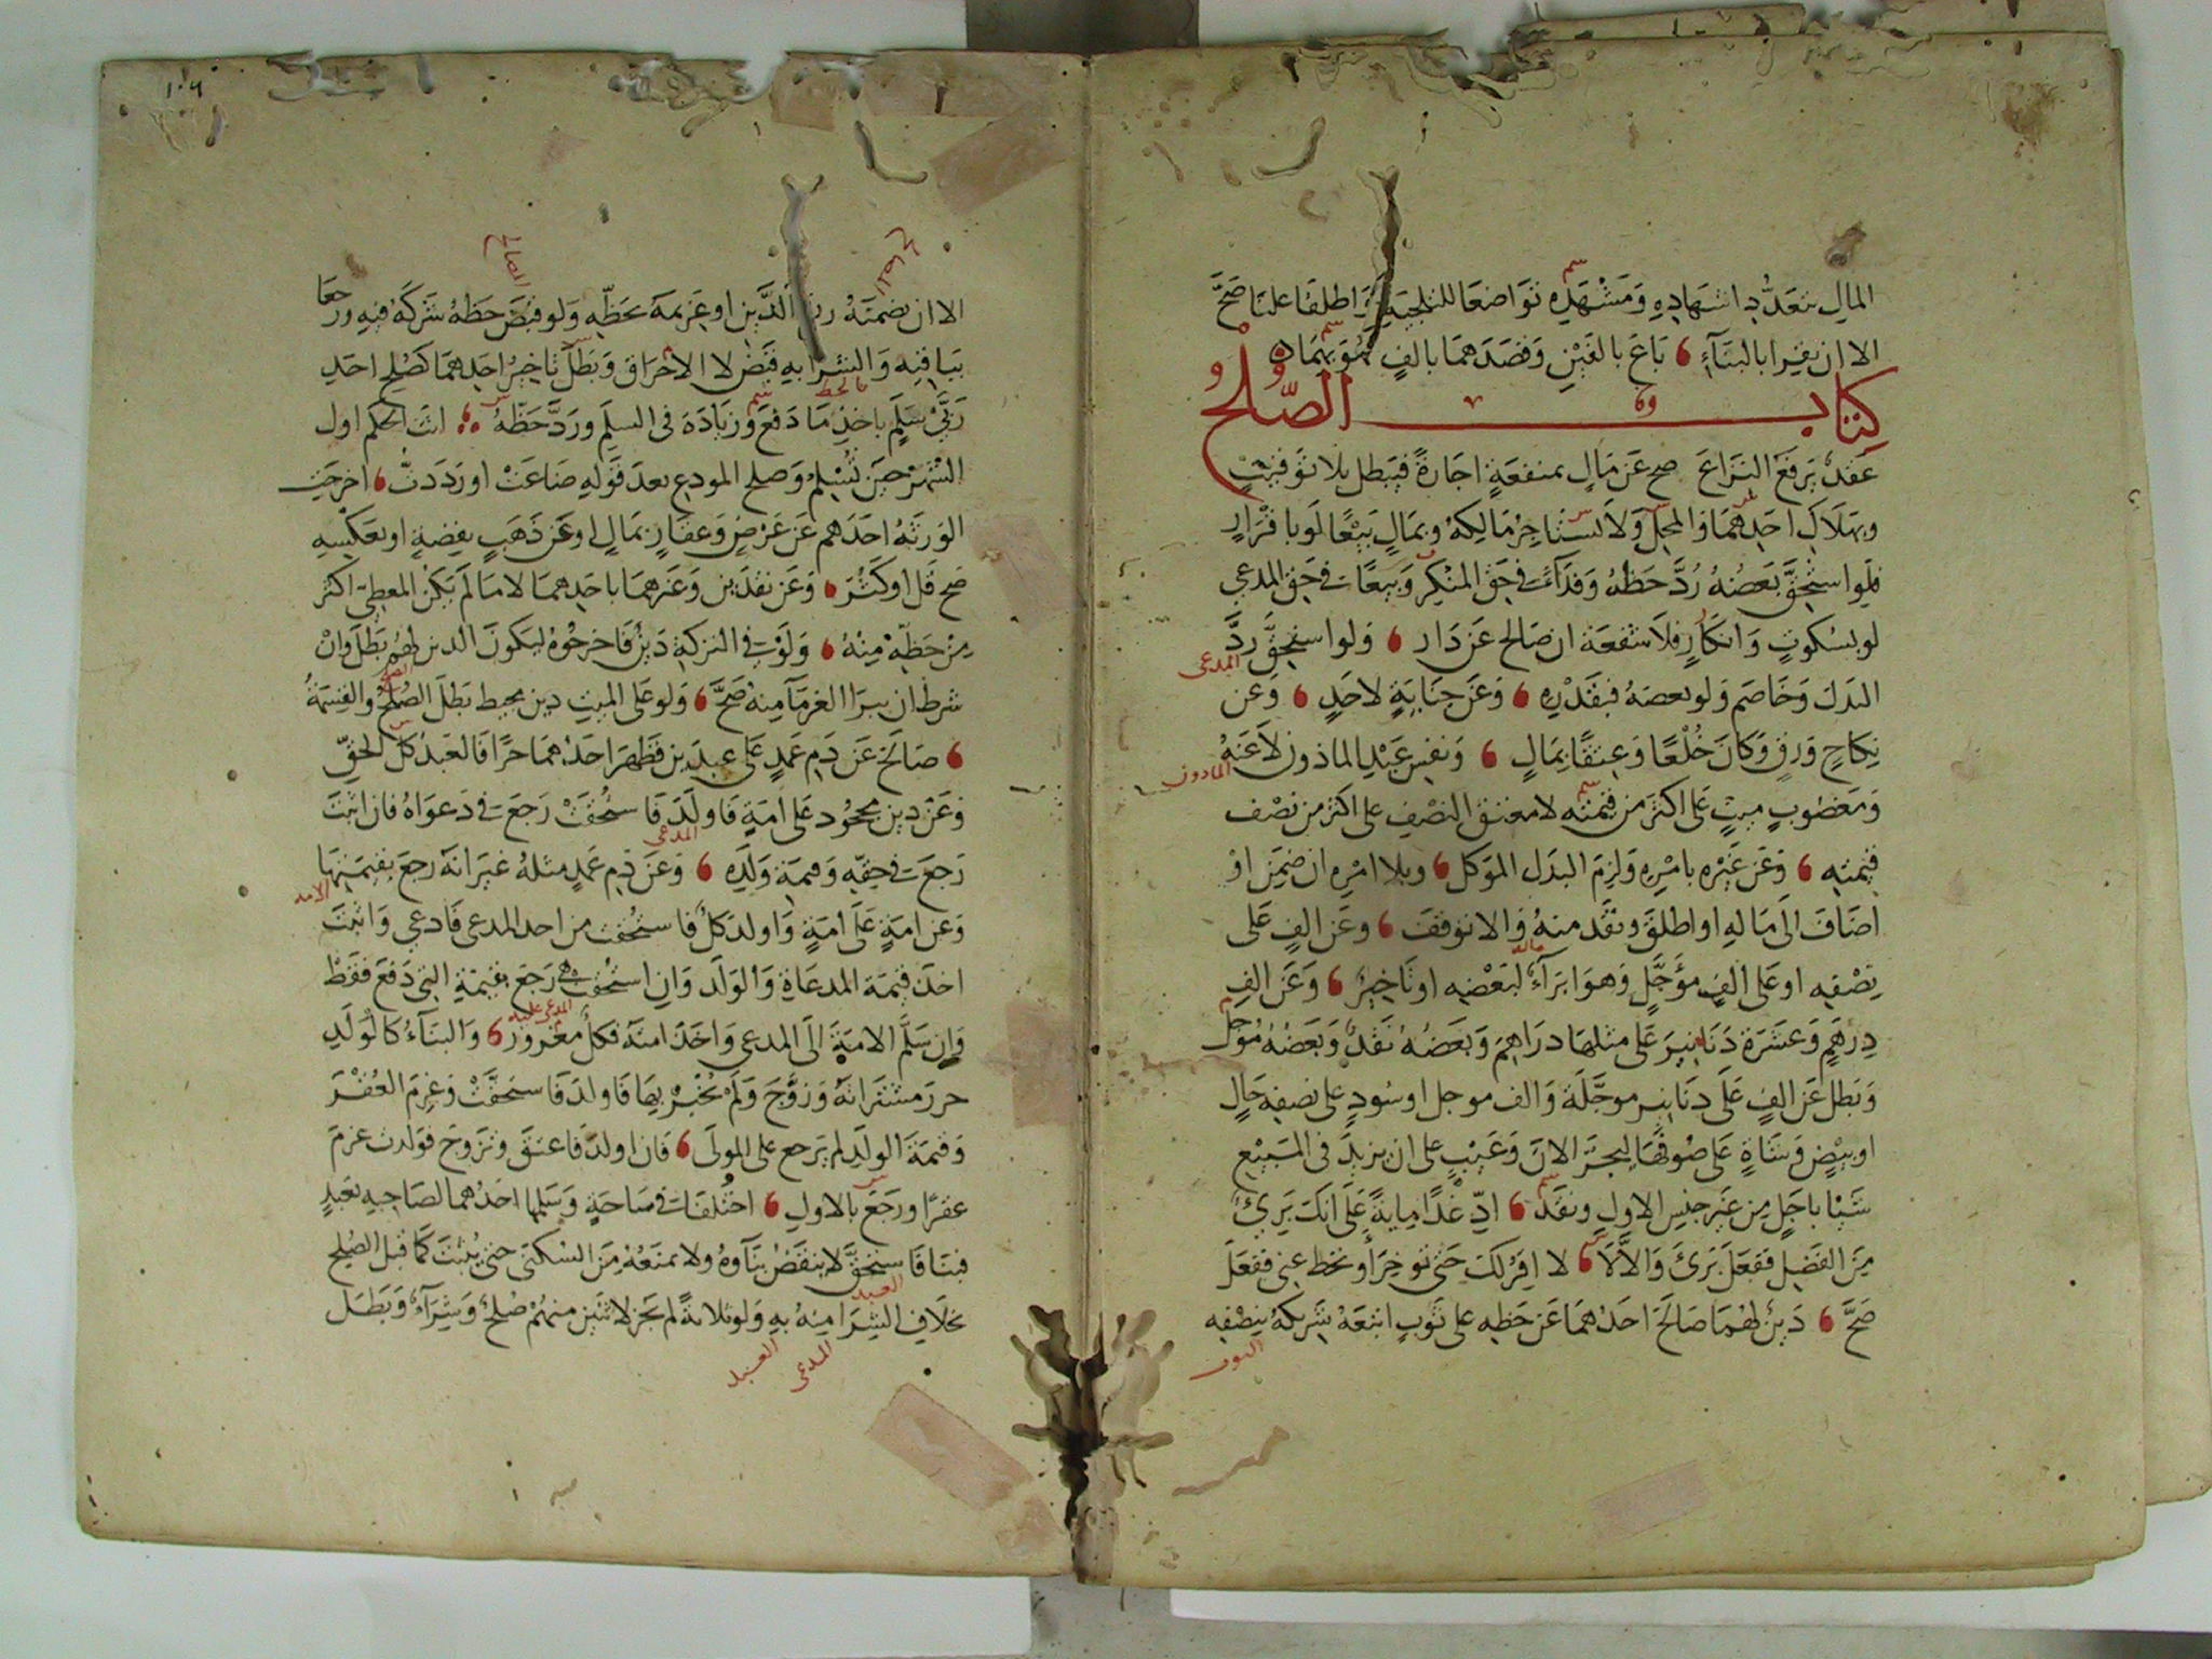 المال بتعدد اشهاده ومشهده تواضعا للتلجية واطلقا علنا صح
الا ان يقرا بالبناء باع بالفين وقصدهما بالف مموها
كتاب الصلح
عقد يرفع النزاع صح عن مال بمنفعة اجارة فيبطل بلا توقيت
وبهلاك احدهما والمحل ولا يستاجر مالكه وبمال بيعا لو باقرار
فلو استحق بعضه رد حظه وفداء في حق المنكر وبيعا في حق المدعي
لو بسكوت وانكار فلا شفعة ان صالح عن دار ولو استحق رد
المدعى
البدل وخاصم ولو بعضه فبقدره وعن جناية لا حد وعن
نكاح ورق وكان خلعا وعتقا بمال ونفس عبد الماذون لا عنه
الماذون
ومغصوب ميت على اكثر من قيمته لا معتق النصف على اكثر من نصف
قيمته وعن غيره بامره ولزم البدل الموكل وبلا امره ان ضمن او
اضاف الى ماله او اطلق ونقد منه والا توقف وعن الف على
نصفه او على الف مؤجل وهو ابراء لبعضه او تاخير وعن الف
درهم وعشرة دنانير على مثلها دراهم وبعضه نقد وبعضه موجل
وبطل عن الف على دنانير موجلة والف موجل او سود على نصفه حال
او بيض وشاة على صوفها ليجز الان وعيب على ان يزيد في المبيع
شيا باجل من غير جنس الاول ونقد اد غدا ماية على انك بري
من الفضل ففعل بري والا لا لا اقر لك حتى توخر او تحط عني ففعل
صح دين لهما صالح احدهما عن حظه على ثوب اتبعه شريكه بنصفه
الا ان يضمنه رب الدين او غريمه بحظه ولو قبض حظه شركه فيه ورجعا
بباقيه والشرا به قبض لا الاحراق وبطل تاخير احدهما كصلح احد
ربي سلم باخذ ما دفع وزيادة في السلم ورد حظه اثبت الحكم اول
الشهر حين تسلم وصلح المودع بعد قوله ضاعت او رددت اخرجت
الورثة احدهم عن عرض وعقار بمال او عن ذهب بفضة او بعكسه
صح قل او كثر وعن نقدين وغيرهما باحدهما لا ما لم يكن المعطى اكثر
من حظه منه ولو في التركة دين فاخرجوه ليكون الدين لهم بطل وان
شرط ان يبرا الغرما منه صح ولو على الميت دين محيط بطل الصلح والقسمة
صالح عن دم عمد على عبدين فظهر احدهما حرا فالعبد كل الحق
وعن دين مجحود على امة فاولد فاستحقت رجع في دعواه فان اثبت
المدعى
رجع في حقه وقيمة ولده وعن دم عمد مثله غير انه رجع بقيمتها
الامة
وعن امة على امة واولد كل فاستحقت من احد المدعى فادعى واثبت
اخذ قيمة المدعاة والولد وان استحقت هي رجع بقيمة التي دفع فقط
المدعى عليه
وان سلم الامة الى المدعي واخذ امته فكل مغرور والبناء كالولد
حرر مشتراته وزوج ولم يخبر بها فاولد فاستحقت وغرم العقر
وقيمة الولد لم يرجع على المولى فان اولد فاعتق وتزوج فولدت غرم
عقرا ورجع بالاول اختلفا في ساحة وسلمها احدهما لصاحبه بعبد
فبنا فاستحق لا ينقض بناوه ولا يمنعه من السكنى حتى يثبت كما قبل الصلح
العبد
بخلاف الشرا منه به ولو ثلاثة لم يجز لاثنين منهم صلح وشراء وبطل
المدعى
العبد